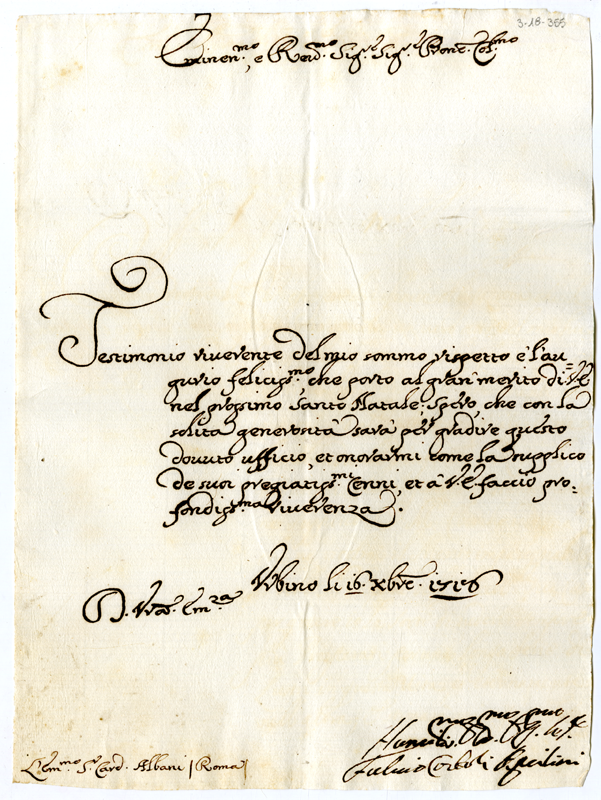 3-18-365
Eminen.mo, e Rever.mo Sig.r Sig.r Prone. Col.mo
Testimonio riverente del mio sommo rispetto è l'au
gurio feliciss.mo, che porto al gran merito di V.E.
nel prossimo Santo Natale. Spero, che con la
solita generosità sarà per gradire questo
dovuto ufficio, et onorarmi come la supplico
de suoi pregiatiss.mi Cenni, et à V.E. faccio pro-
fondiss.ma riverenza.
Urbino li 16. Xbre. 1716
D. Vra. Em.za
Humiliss. Dev. Obl. Ser.
Fulvio Corboli Aquilini
L'Em.mo Sr. Card. Albani / Roma /